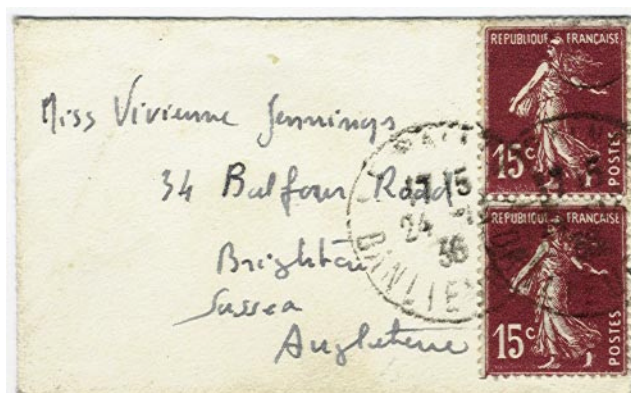 Miss Vivienne Jennings
34 Balfour Road
Brighton
Sussex
Angleterre
REPUBLIQUE FRANÇAISE
15c
POSTES
REPUBLIQUE FRANÇAISE
15c
POSTES
15
24
36